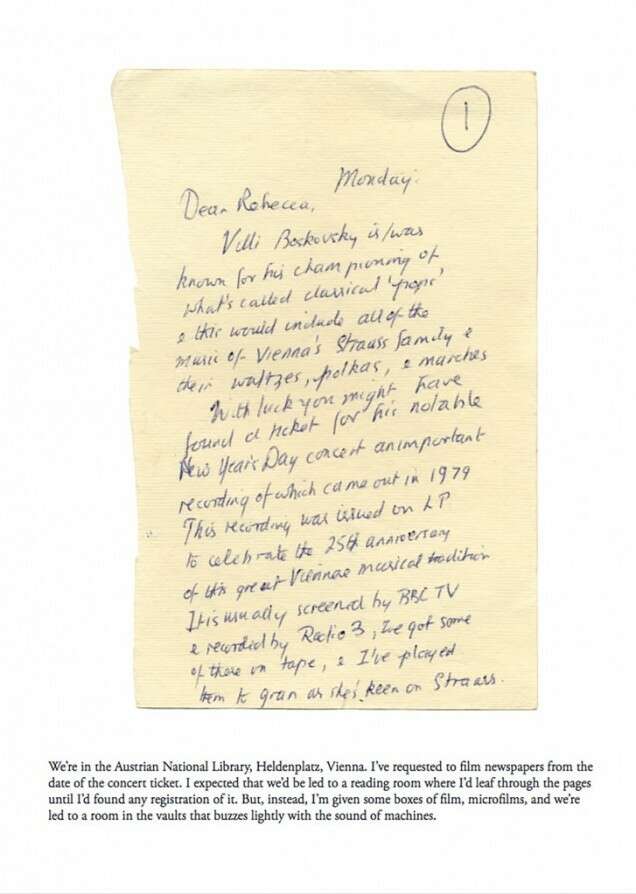 1
Monday.
Dear Rebecca,
Villi Boskovsky is/was
known for his championing of
what's called classical 'pops'
& this would include all of the
music of Vienna's Strauss family &
their waltzes, polkas, & marches
With luck you might have
found a ticket for his notable
New Year's Day concert an important
recording of which came out in 1979
This recording was issued on LP
to celebrate the 25th anniversary
of this great Viennese musical tradition
It is usually screened by BBC TV
& recorded by Radio 3, I've got some
of these on tape, & I've played
them to gran as she's keen on Strauss.
We're in the Austrian National Library, Heldenplatz, Vienna. I've requested to film newspapers from the
date of the concert ticket. I expected that we'd be led to a reading room where I'd leaf through the pages
until I'd found any registration of it. But, instead, I'm given some boxes of film, microfilms, and we're
led to a room in the vaults that buzzes lightly with the sound of machines.